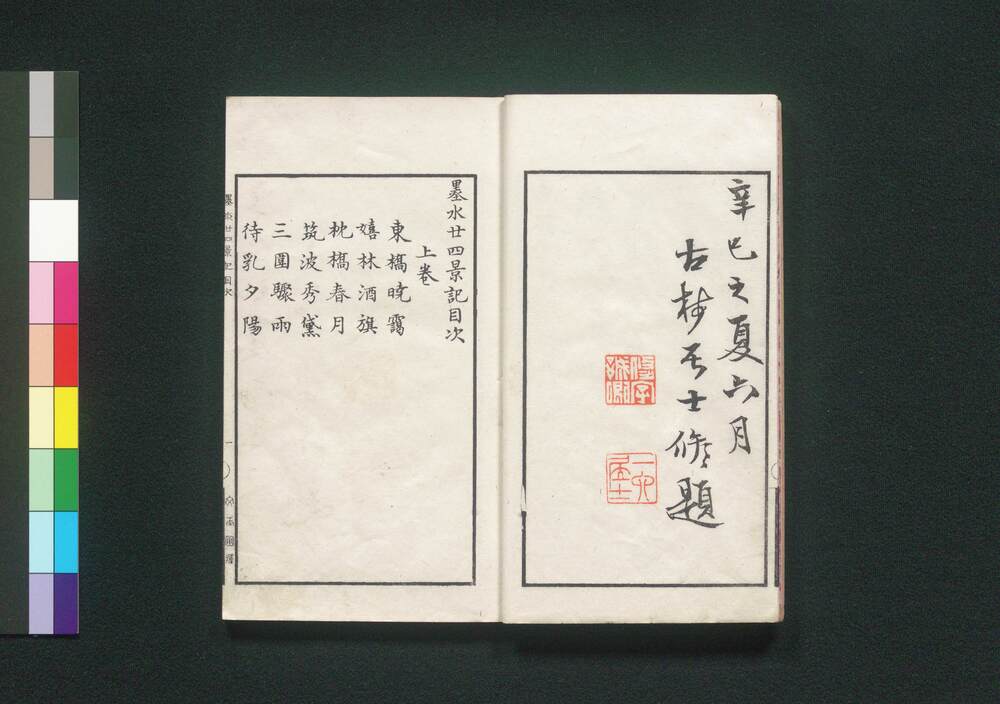 辛巳之夏六月
古村居士脩題
墨水廿四景記目次
上卷
東橋曉靄
嬉林酒旗
枕橋春月
筑波秀黛
三圍驟雨
待乳夕陽
墨水廿四景記目次
一